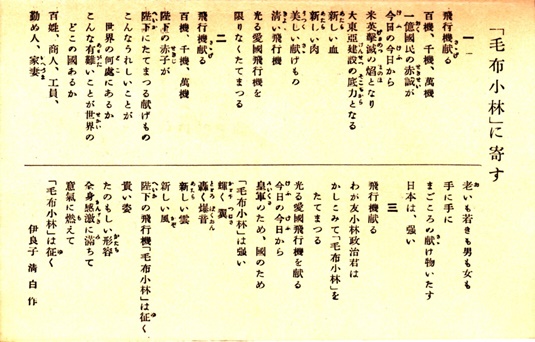 「毛布小林」に寄す
一
飛行機献る
百機、千機、萬機
一億國民の赤誠が
今日の今日から
米英撃滅の焰となり
大東亞建設の底力となる
新しい血
新しい肉
美しい献げもの
清い飛行機
光る愛國飛行機を
限りなくたてまつる
二
飛行機献る
百機、千機、萬機
陛下の赤子が
陛下にたてまつる献げもの
こんなうれしいことが
世界の何處にあるか
こんな有難いことが世界の
どこの國あるか
百姓、商人、工員、
勤め人、家妻
老いも若きも男も女も
手に手に
まごころの献げ物いたす
日本は、强い
三
飛行機献る
わが友小林政治君は
かしこみて「毛布小林」を
たてまつる
光る愛國飛行機を献る
今日の今日から
皇軍のため、國のため
「毛布小林」は强い
輝く翼
轟く爆音
新しい雲
新しい風
陛下の飛行機「毛布小林」は征く
貴い姿
たのもしい形容
全身感激に滿ちて
意氣に燃えて
「毛布小林」は征く
伊良子清白作